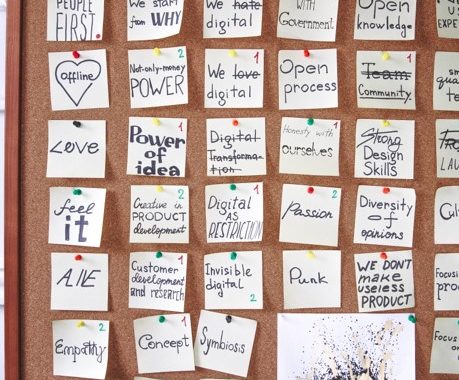 PEOPLE
FIRST.
We start
from WHY
We hate
digital
WITH
Government
Open
knowledge
U
EXPE
offline
2
Not-only-money
POWER
1
We love
digital
Open
process
1
Team
Community
sm
qua
te
Love
1
Power
of
idea
Digital
Transforma-
tion
1
Honesty with
ourselves
Strong
Design
Skills
feel
it
2
Creative in
PRODUCT
development
1
Digital
AS
RESTRICTION
2
Passion
Diversity
of
opinions
Cul
A/IE
1
Customer
development
and research
Invisible
digital
2
Punk
WE DON'T
MAKE
USELESS
PRODUCT
Focus
pro
2
Empathy
1
Concept
Symbiosis
Foc